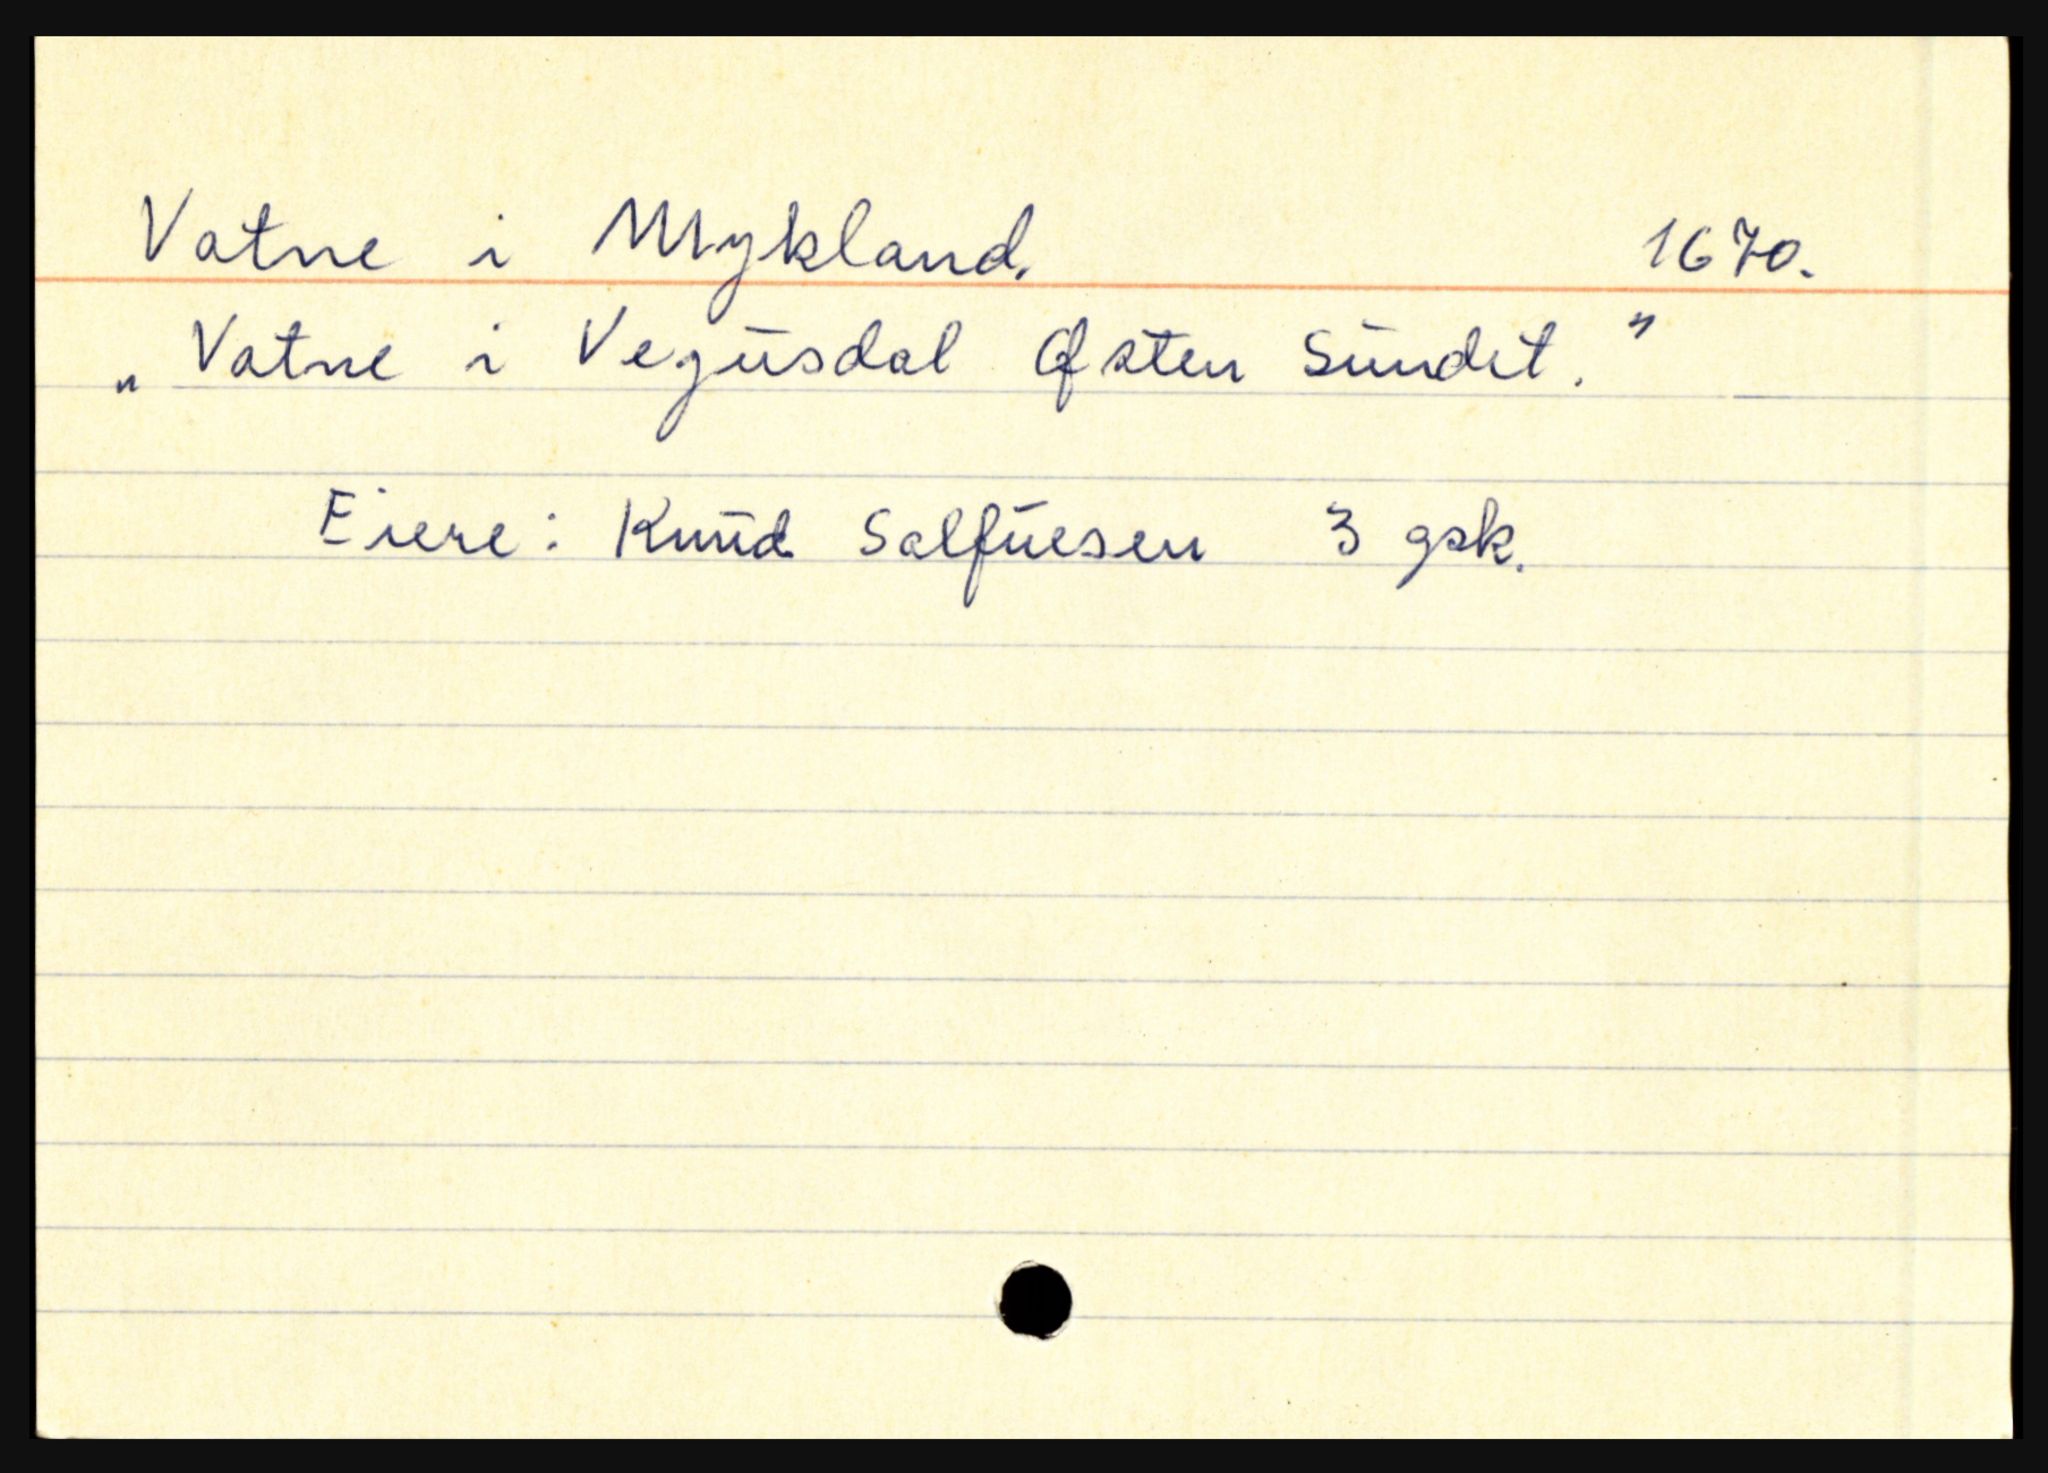 Vatne i Mykland. 1670.
„Vatne i Vegusdal Østen Sundet.”
Eiere: Knud Salfuesen 3 gsk.